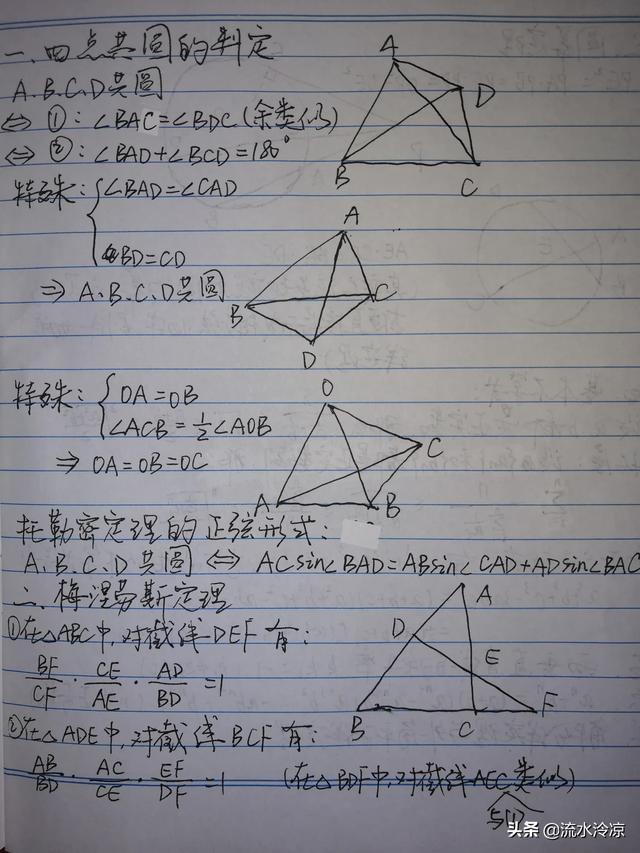 一.四点共圆的判定
A.B.C.D共圆
⇔ ①: ∠BAC=∠BDC(余类似)
⇔ ②: ∠BAD+∠BCD=180°
A
D
B
C
特殊: { ∠BAD=∠CAD
BD=CD
⇒ A、B、C、D共圆
A
B
C
D
特殊: { OA=OB
∠ACB=½∠AOB
⇒ OA=OB=OC
O
C
A
B
托勒密定理的正弦形式:
A、B、C、D共圆 ⇔ ACsin∠BAD=ABsin∠CAD+ADsin∠BAC
二.梅涅劳斯定理
①在△ABC中,对截线DEF有:
BF/CF · CE/AE · AD/BD =1
A
D
E
B
C
F
②在△ADE中,对截线BCF有:
AB/BD · AC/CE · EF/DF =1 (在△BDF中,对截线AEC类似)
与①
头条 @流水冷凉